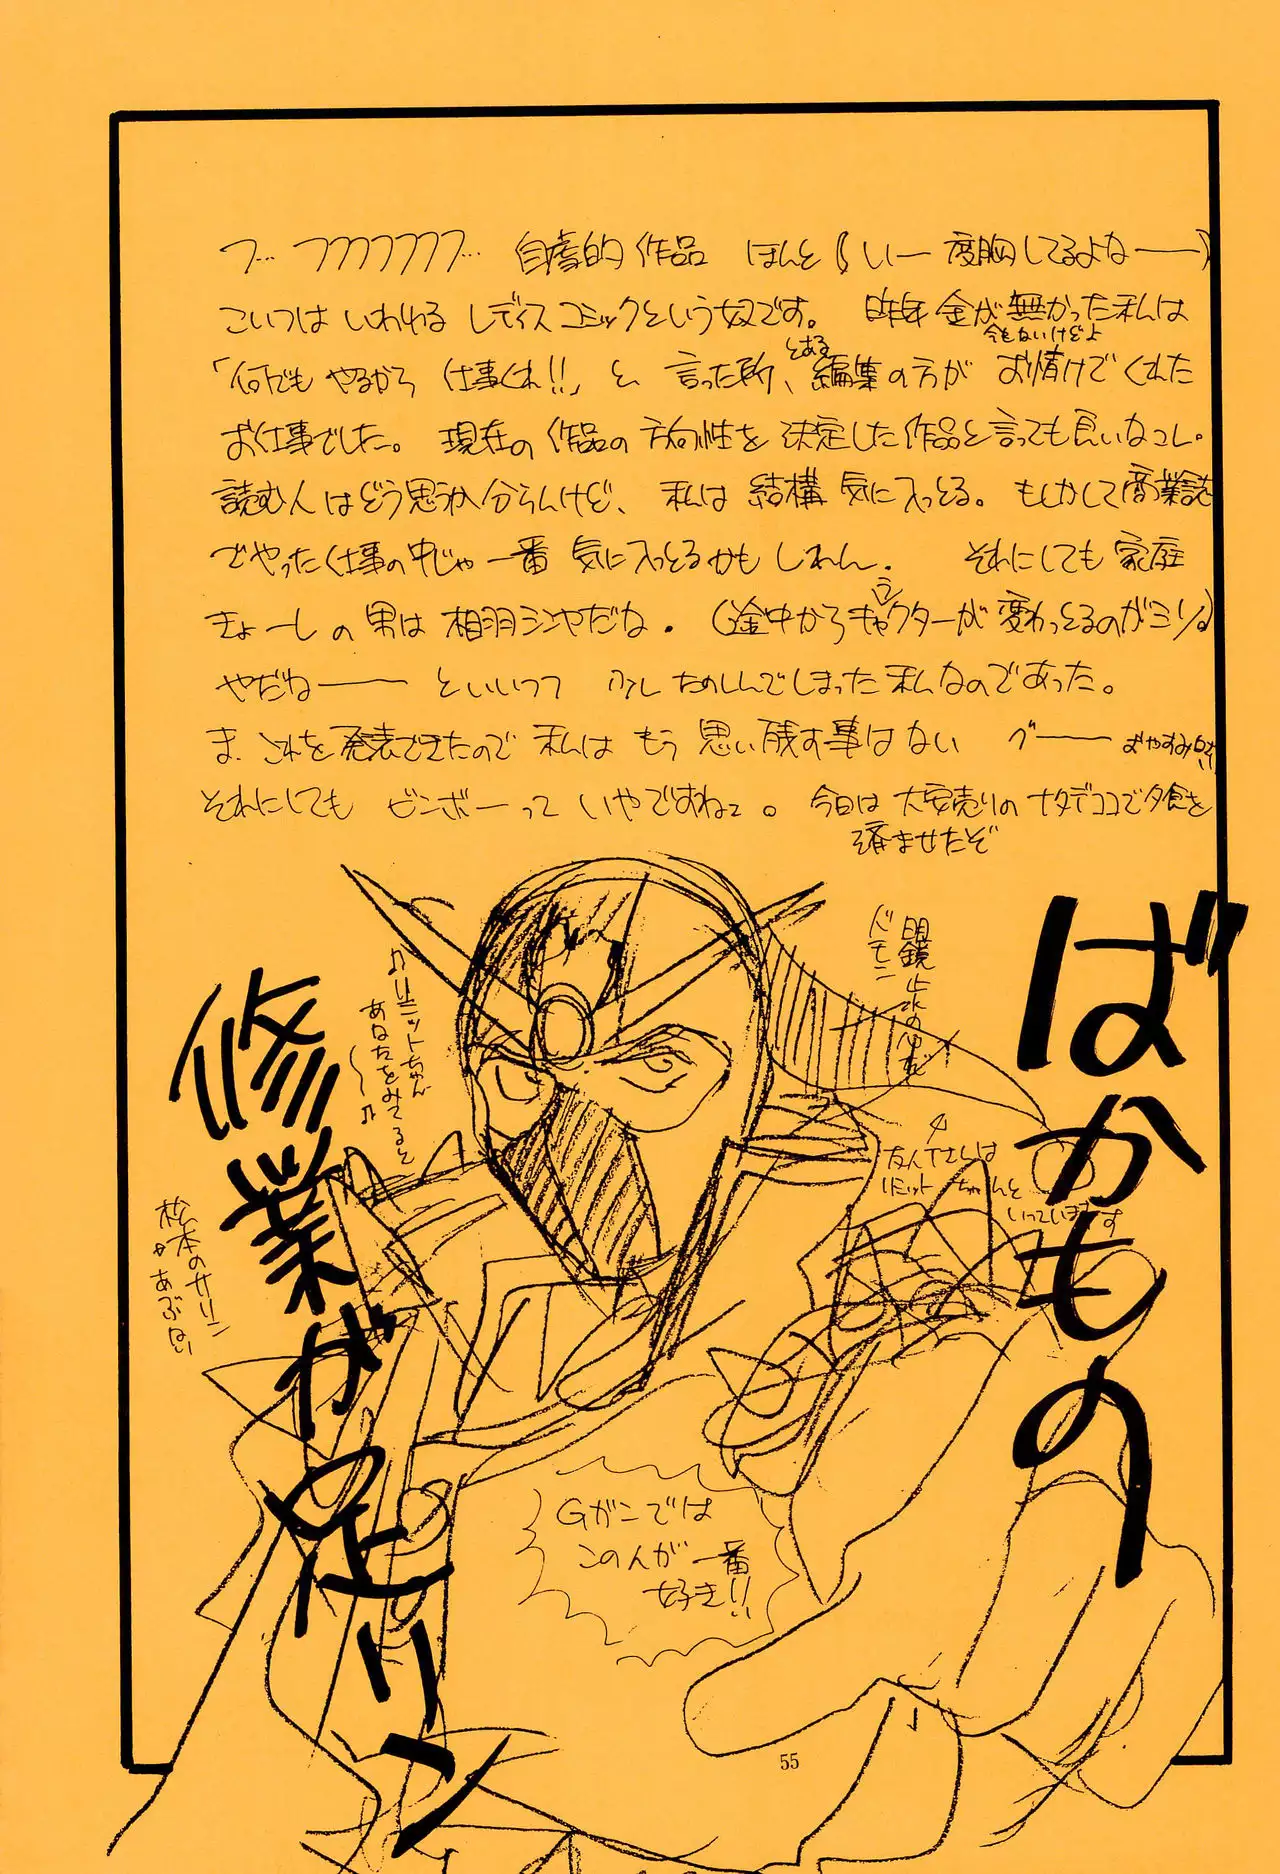 フ… フフフフフフフ… 自虐的作品 ほんと(いー度胸してるよなー)
こいつは いわゆる レディスコミックという奴です。 昨年金が無かった私は
今もないけどよ
「何でも やるから 仕事くれ!!」と 言った所、とある編集の方が お情けでくれた
お仕事でした。現在の作品の方向性を決定した作品と言っても良いなコレ。
読む人はどう思うか分らんけど、私は結構気に入っとる。もしかして商業誌
でやった仕事の中じゃ一番気に入っとるかもしれん。 それにしても家庭
きょーしの男は相羽シンヤだね。(途中からキャラクターが変わっとるのがミソ)
やだねーー といいつつ 少したのしんでしまった私なのであった。
ま、これを発表できたので私はもう思い残す事はない グーー おやすみ
それにしても ビンボーって いやですねェ。今日は大安売りのナタデココで夕食を
済ませたぞ
ばかもの
修業が足リン
明鏡止水の
ドモン
♪リミットちゃん
あなたをみてると
〜♪
なんてさしは
リミットちゃんと
いっています
松本のサリン
あぶない
Gガンでは
この人が一番
好き!!
55